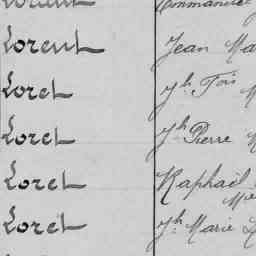 Commande
Lorent Jean Ma
Loret Jh Fois M
Loret Jh Pierre M
Loret Raphaël
Loret Jh Marie L